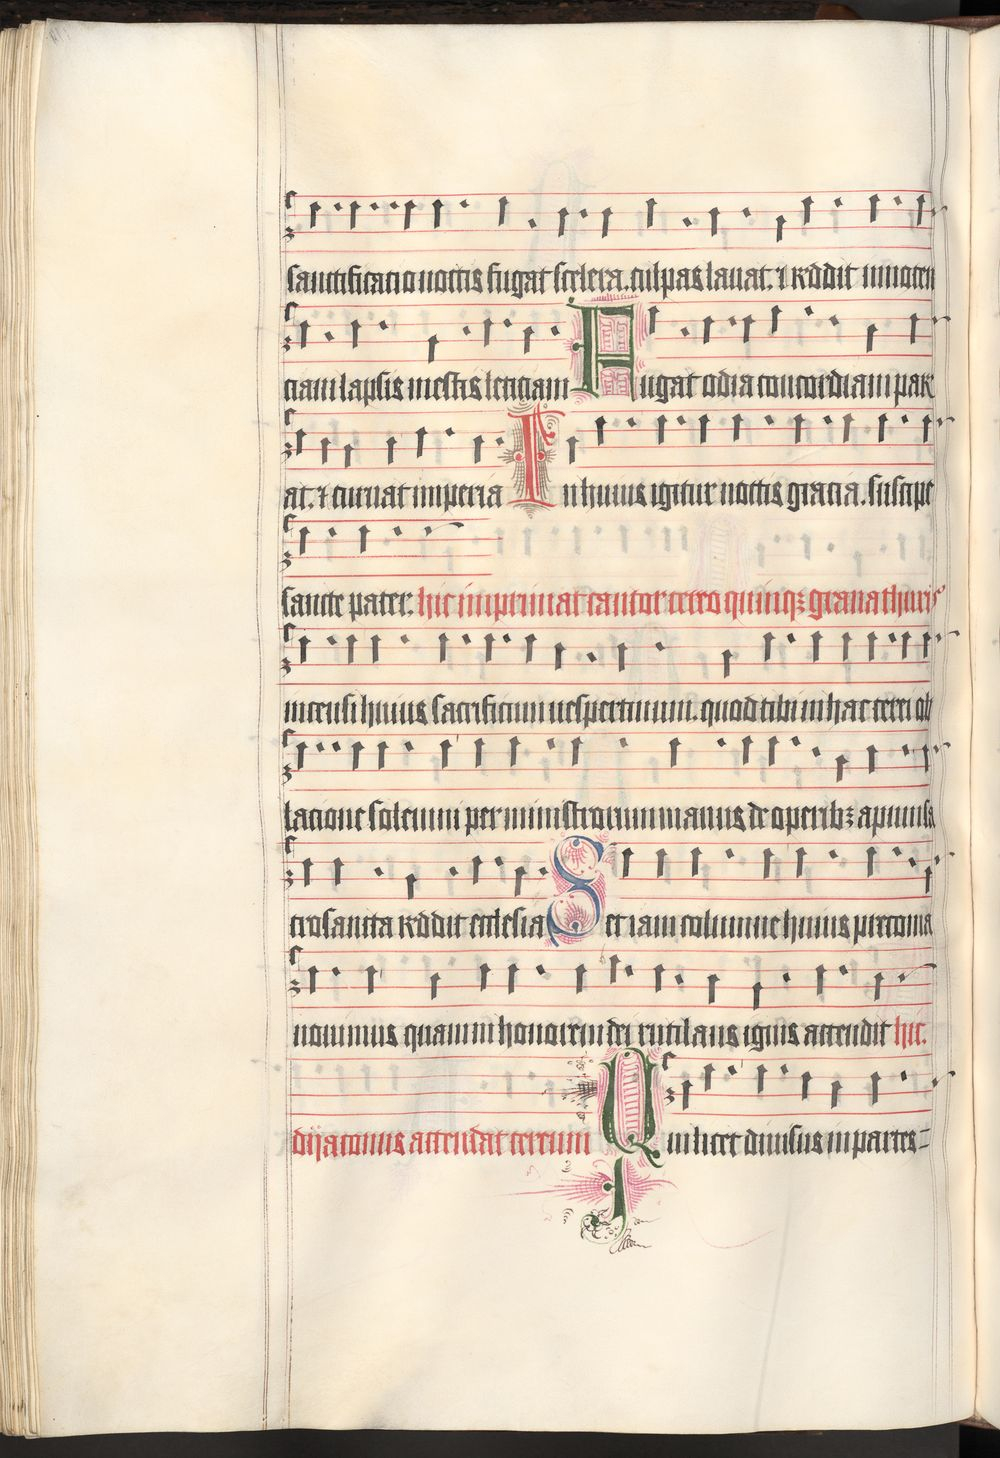 sanctificatio noctis fugat scelera. culpas lavat. ⁊ reddit innocen
ciam lapsis mestis leticiam Fugat odia concordiam par
at. ⁊ curvat imperia In huius igitur noctis gracia. suscipe
sancte pater. hic imprimat cantor cereo quinqꝫ grana thuris
incensi huius sacrificium vespertinum. quod tibi in hac cerei ob
lacione solemni per ministrorum manus de operibꝫ apum sa
crosancta reddit ecclesia Set iam columne huius preconia
novimus quam in honorem dei rutilans ignis accendit hic.
dÿaconus accendat cereum Qui licet divisus in partes